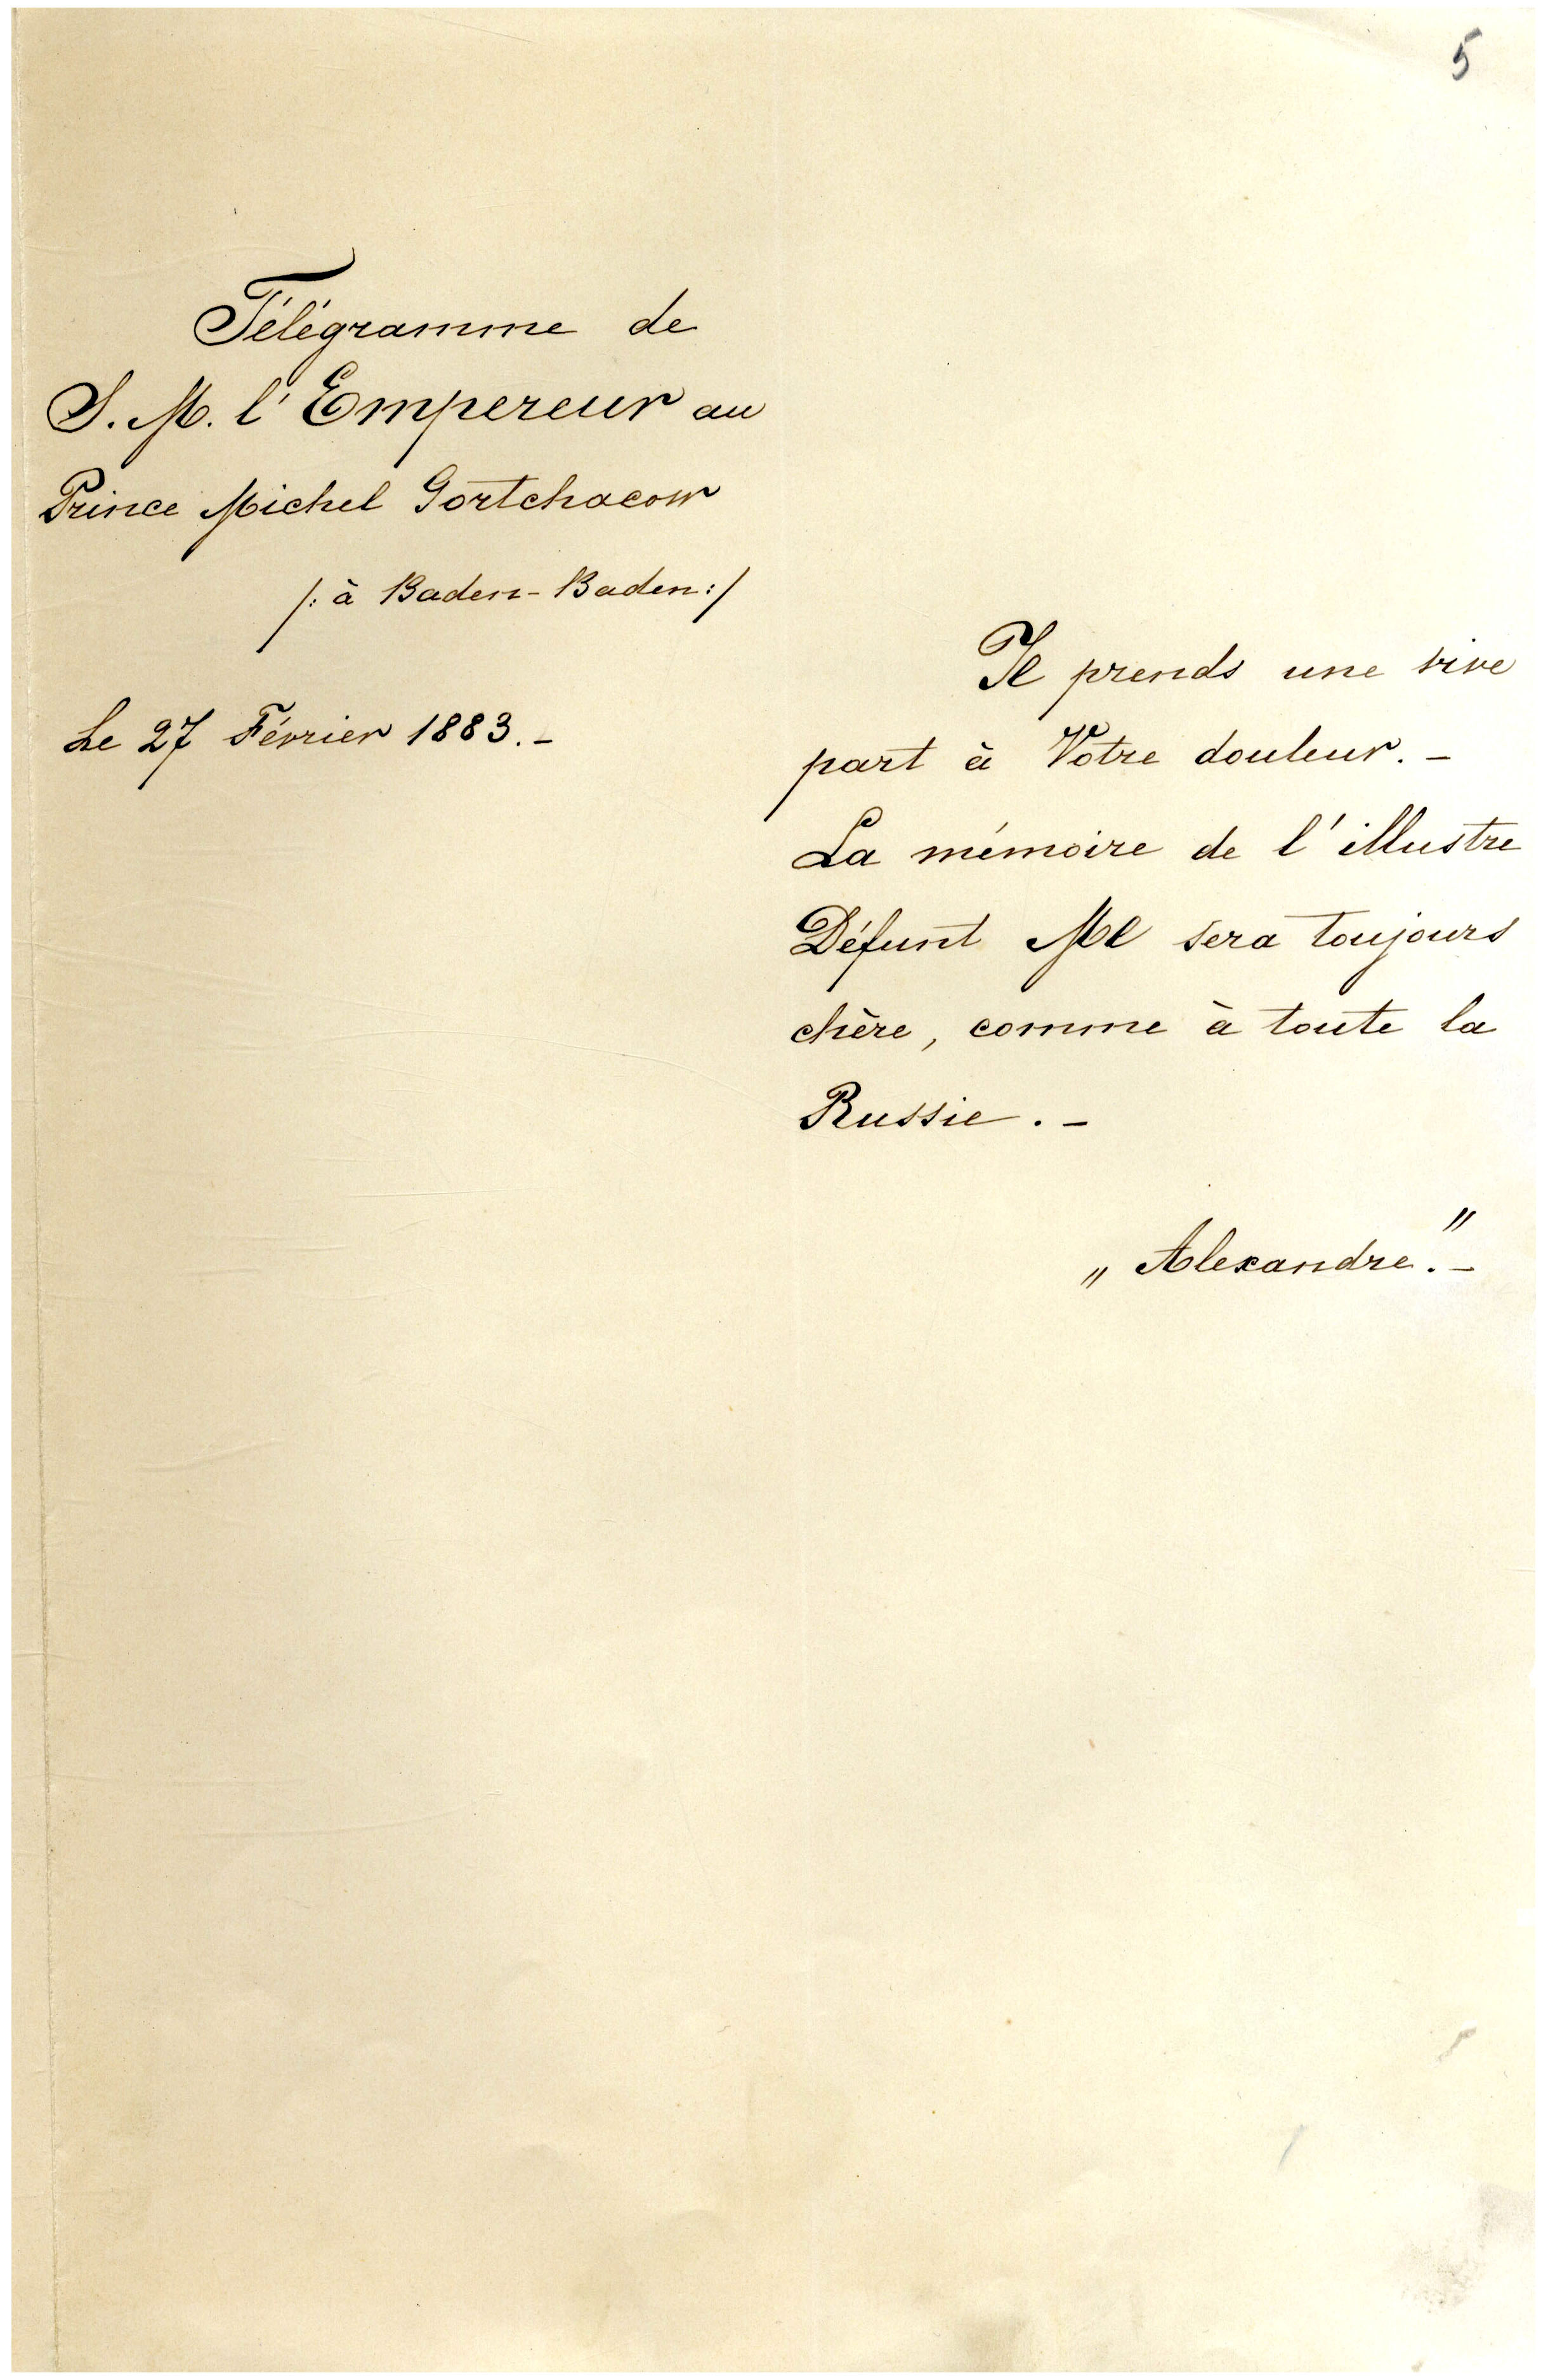 5
Télégramme de
S. M. l'Empereur au
Prince Michel Gortchacow
/: à Baden-Baden :/
Le 27 Février 1883. –
Je prends une vive
part à Votre douleur. –
La mémoire de l'illustre
Défunt Me sera toujours
chère, comme à toute la
Russie. –
„Alexandre." –